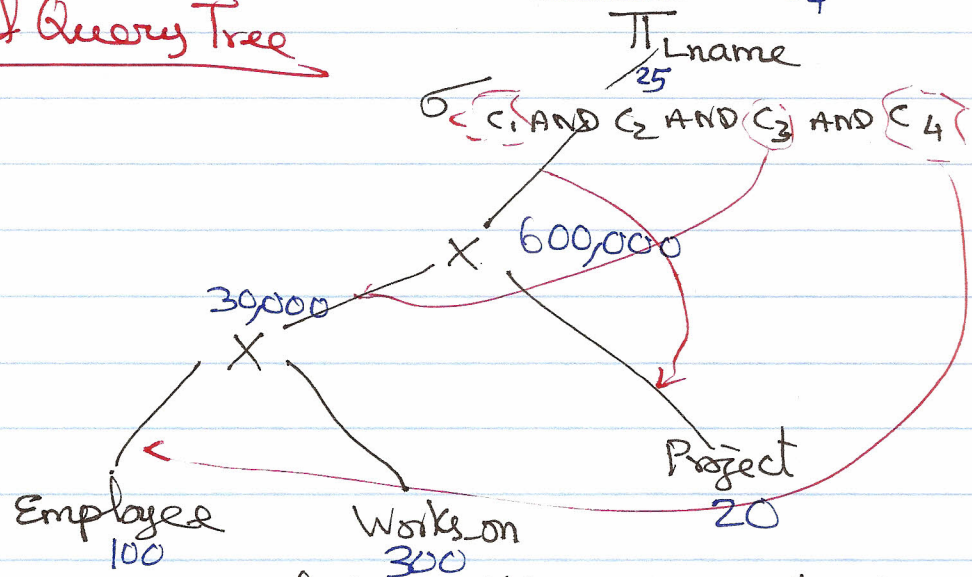 Query Tree
π Lname
25
σ < C1 AND C2 AND C3 AND C4 >
X 600,000
30,000
X
Project
20
Employee Works_on
100 300